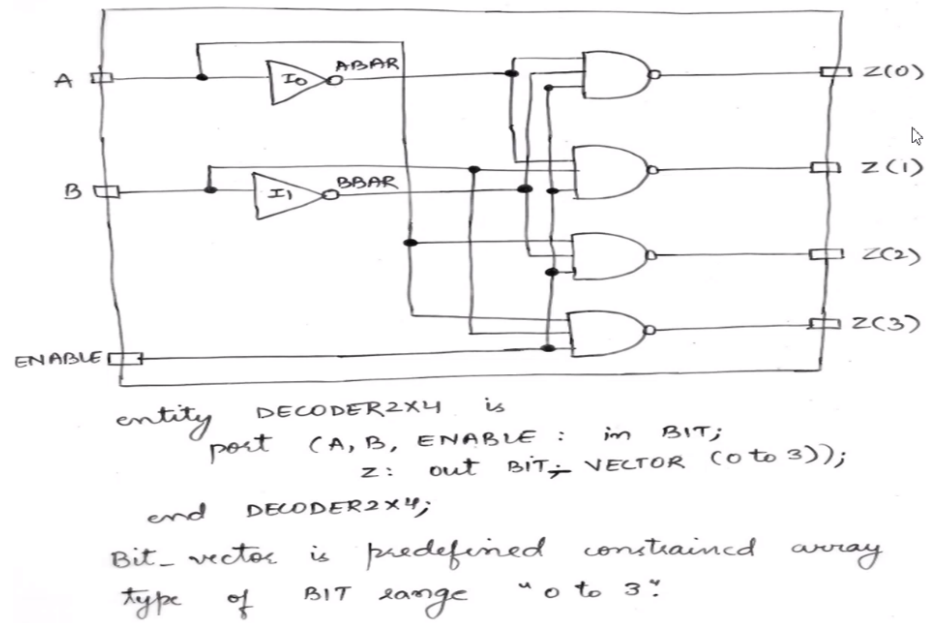 A
I0
ABAR
Z(0)
B
I1
BBAR
Z(1)
Z(2)
Z(3)
ENABLE
entity DECODER2X4 is
port (A, B, ENABLE : in BIT;
Z: out BIT_VECTOR (0 to 3));
end DECODER2X4;
Bit_vector is predefined constrained array
type of BIT range "0 to 3".